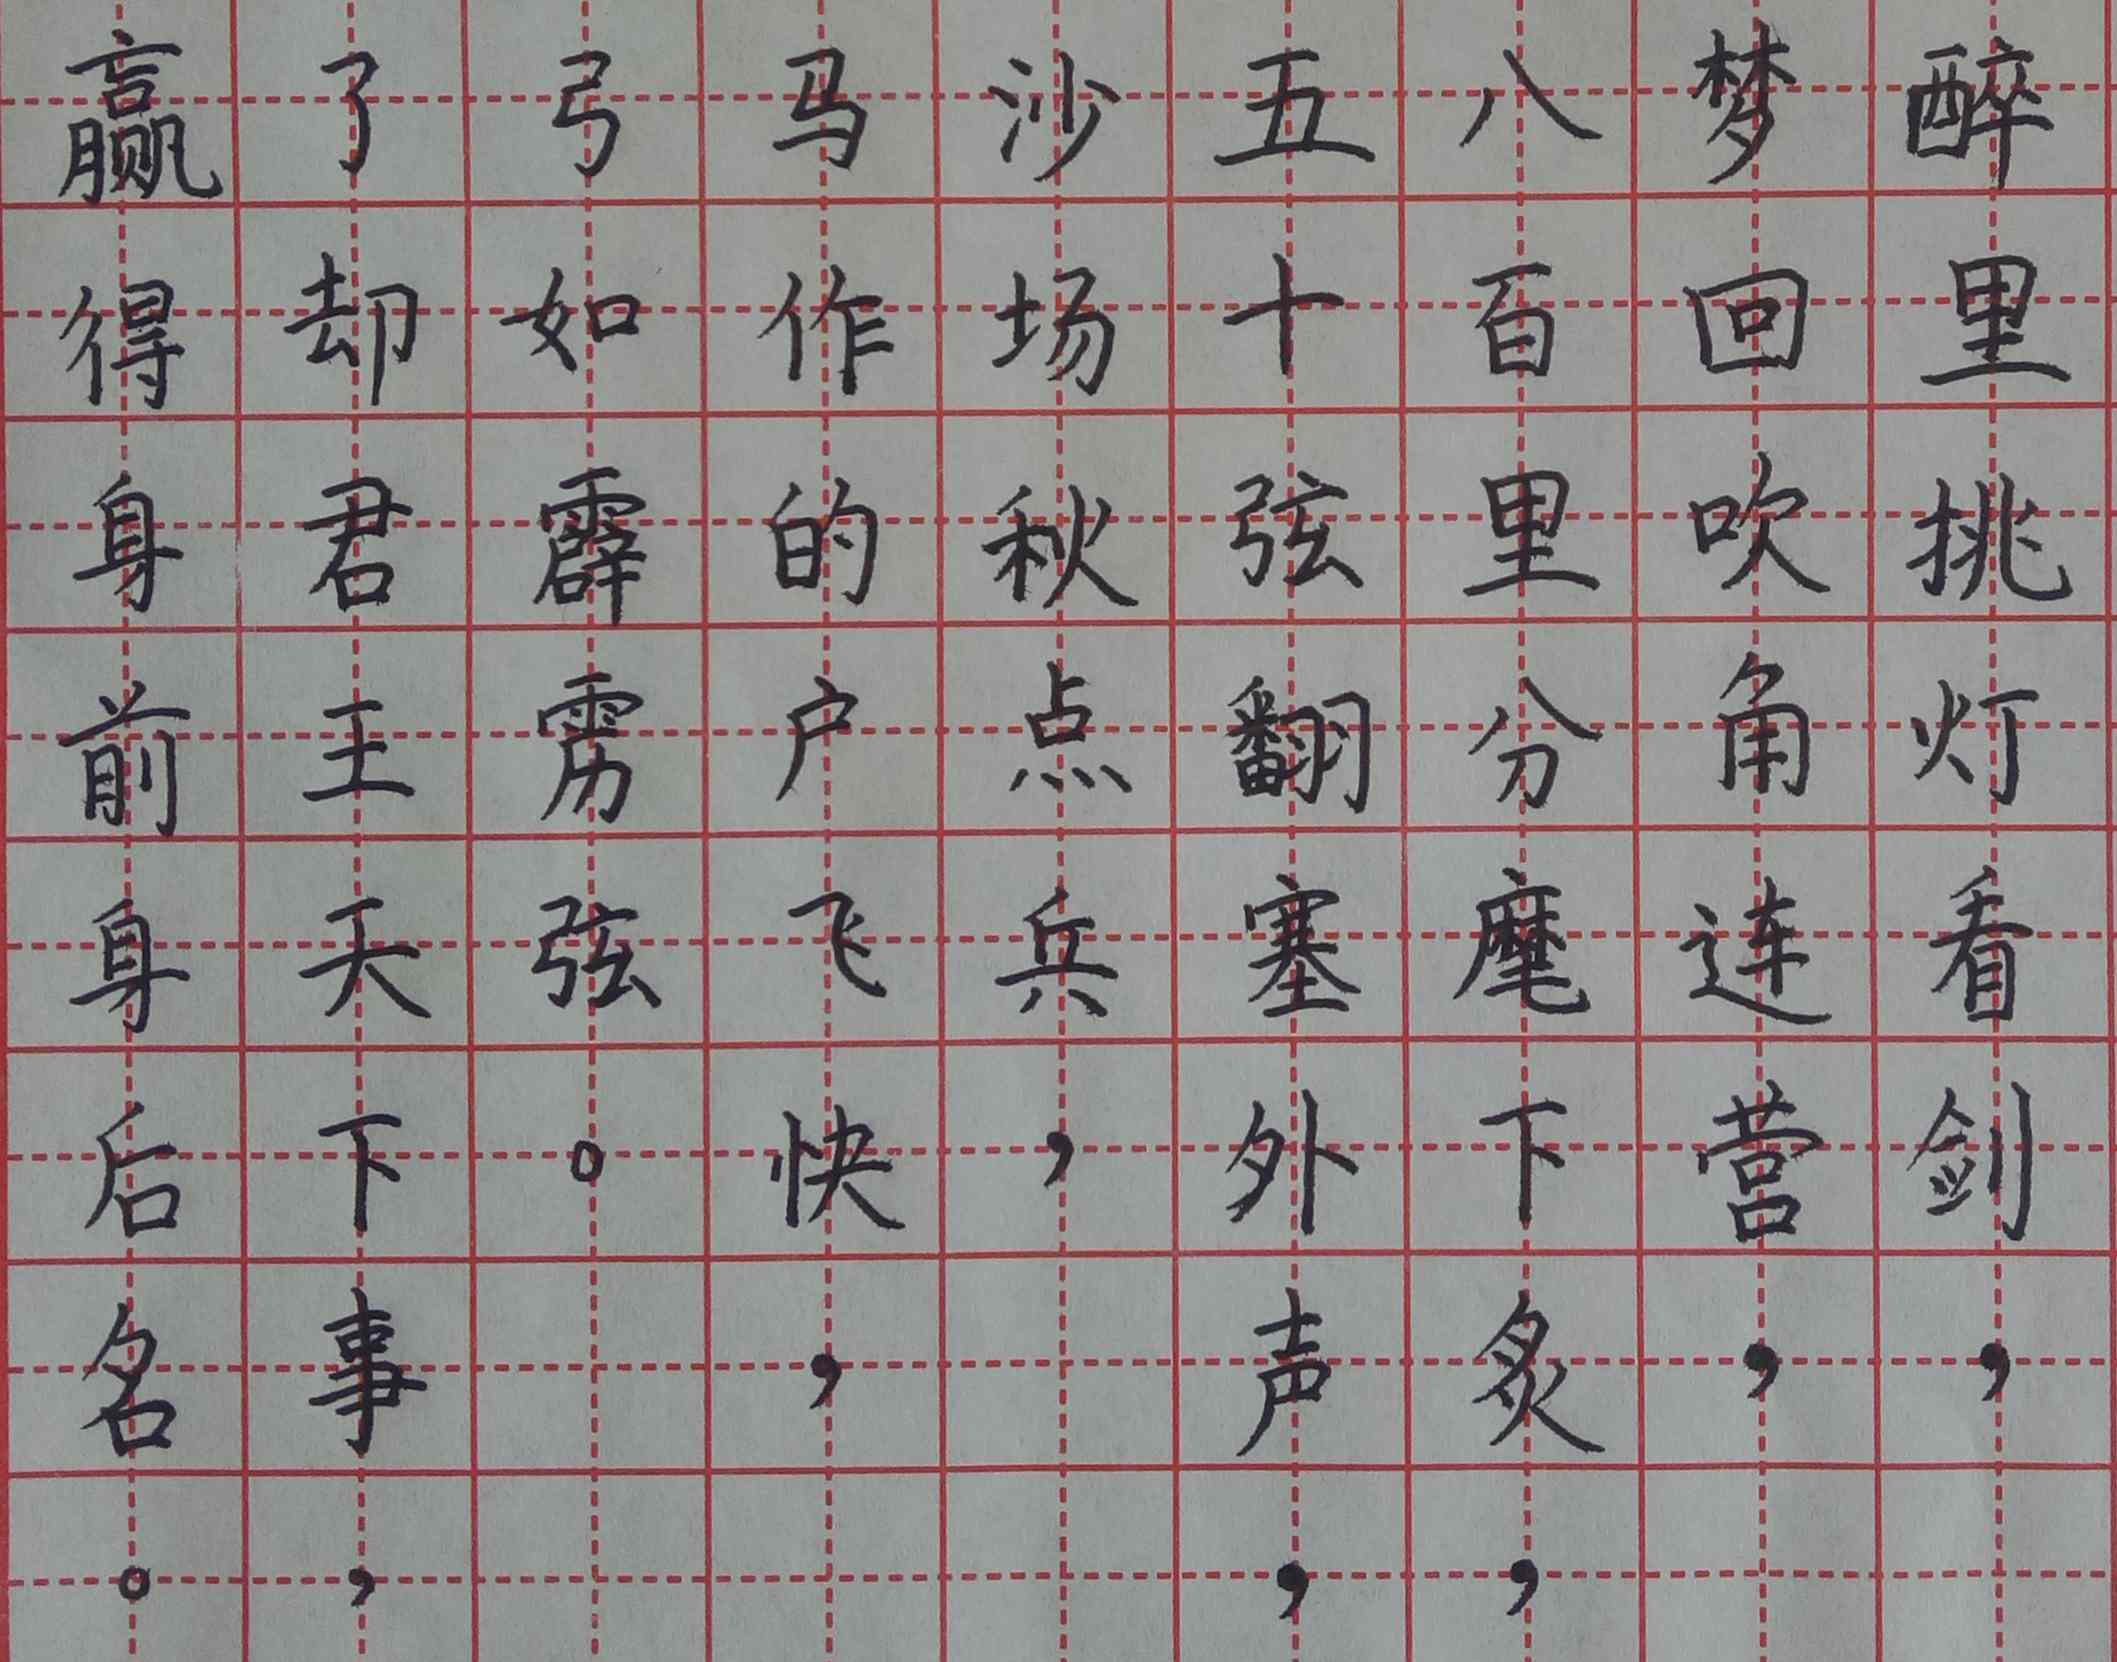 醉里挑灯看剑，
梦回吹角连营，
八百里分麾下炙，
五十弦翻塞外声，
沙场秋点兵，
马作的户飞快，
弓如霹雳弦。
了却君王天下事，
赢得身前身后名。